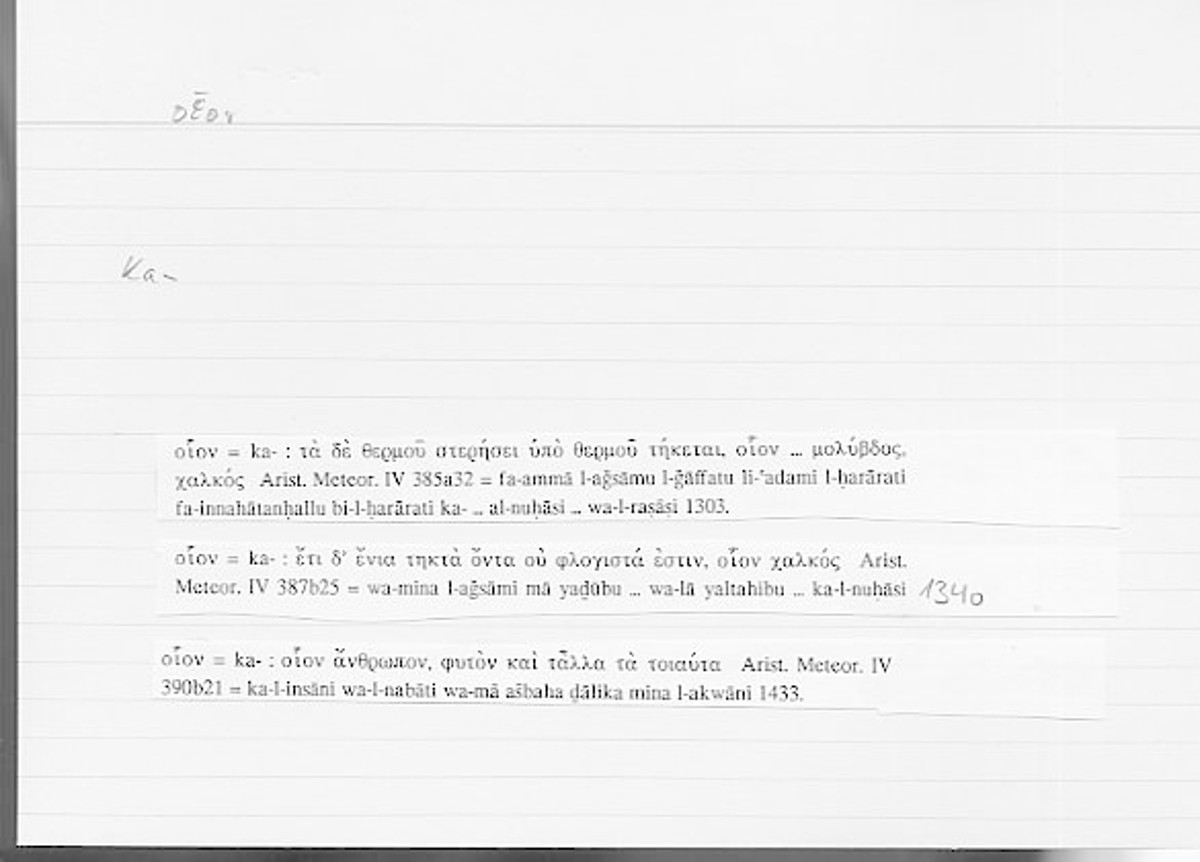 οἷον
ka-
οἷον = ka- : τὰ δὲ θερμοῦ στερήσει ὑπὸ θερμοῦ τήκεται, οἷον ... μολύβδος,
χαλκός Arist. Meteor. IV 385a32 = fa-ammā l-aǧsāmu l-ǧāffatu li-ʿadami l-ḥarārati
fa-innahātanḥallu bi-l-ḥarārati ka- ... al-nuḥāsi ... wa-l-raṣāṣi 1303.
οἷον = ka- : ἔτι δ' ἔνια τηκτὰ ὄντα οὐ φλογιστά ἐστιν, οἷον χαλκός Arist.
Meteor. IV 387b25 = wa-mina l-aǧsāmi mā yaḏūbu ... wa-lā yaltahibu ... ka-l-nuḥāsi 1340
οἷον = ka- : οἷον ἄνθρωπον, φυτὸν καὶ τἆλλα τὰ τοιαύτα Arist. Meteor. IV
390b21 = ka-l-insāni wa-l-nabāti wa-mā ašbaha ḏālika mina l-akwāni 1433.